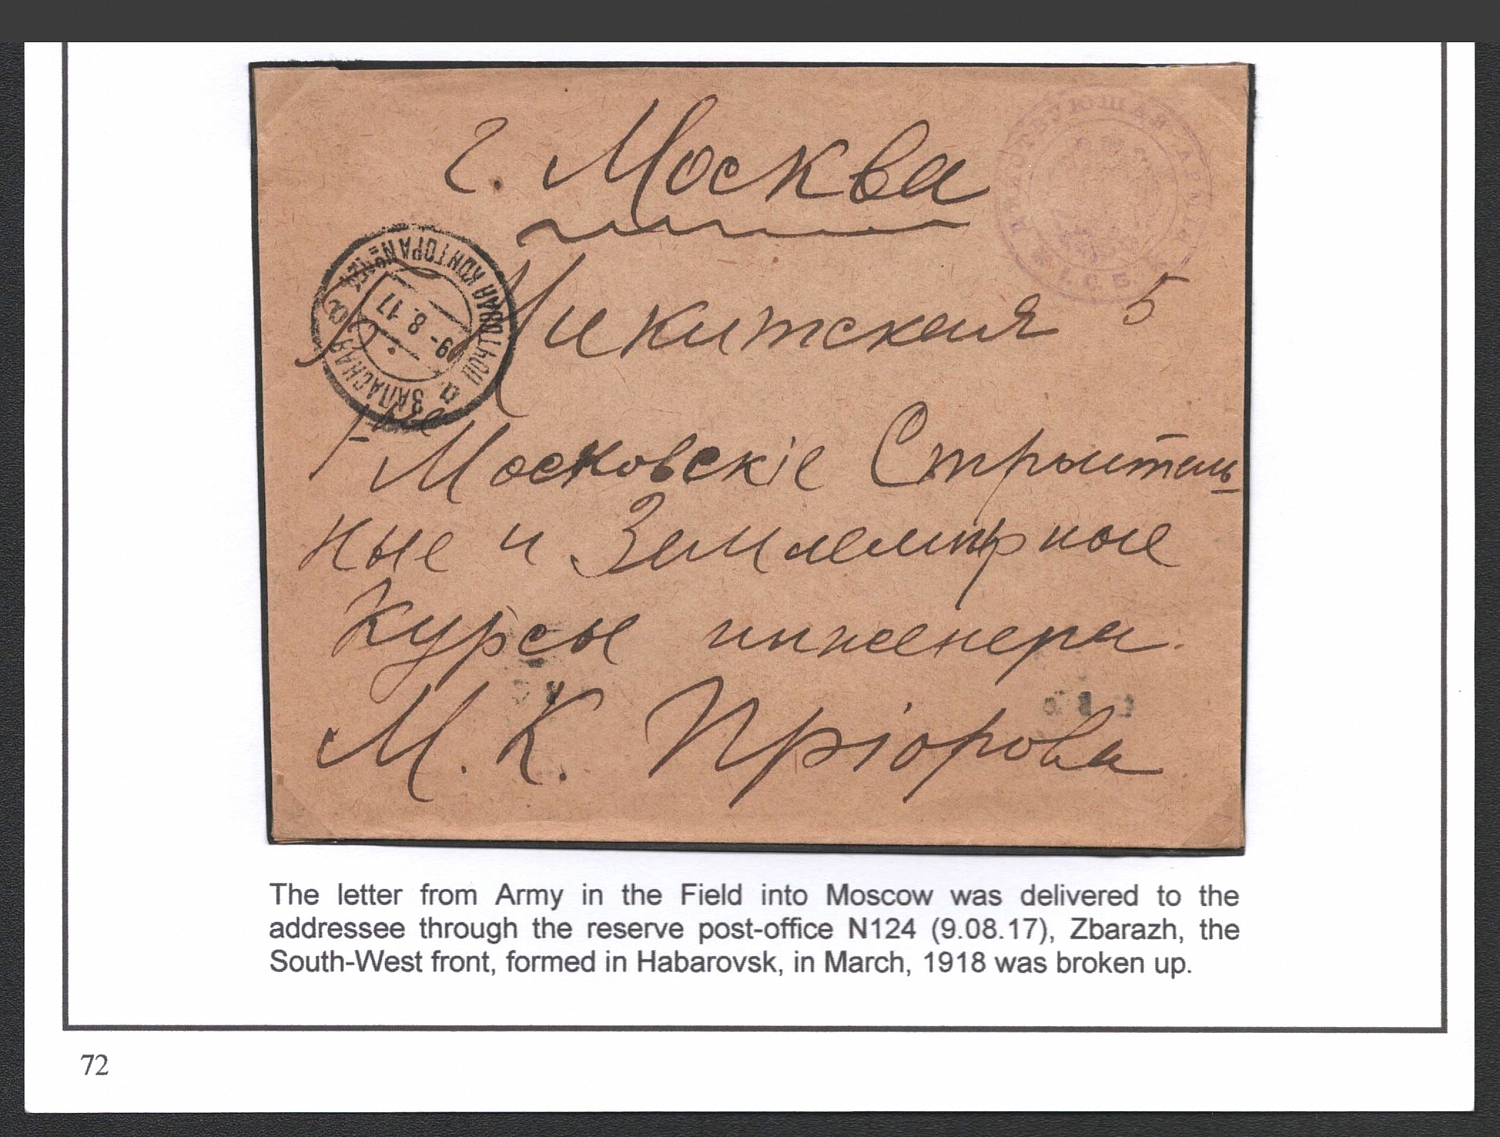 г. Москва
Никитская 5
Московскіе Строитель
ные и Землемѣрные
Курсы инженера.
М. К. Пріорова
ДѢЙСТВУЮЩАЯ АРМІЯ
ЗАПАСНАЯ ПОЧТОВАЯ КОНТОРА №124
09-8.17
а а
The letter from Army in the Field into Moscow was delivered to the
addressee through the reserve post-office N124 (9.08.17), Zbarazh, the
South-West front, formed in Habarovsk, in March, 1918 was broken up.
72